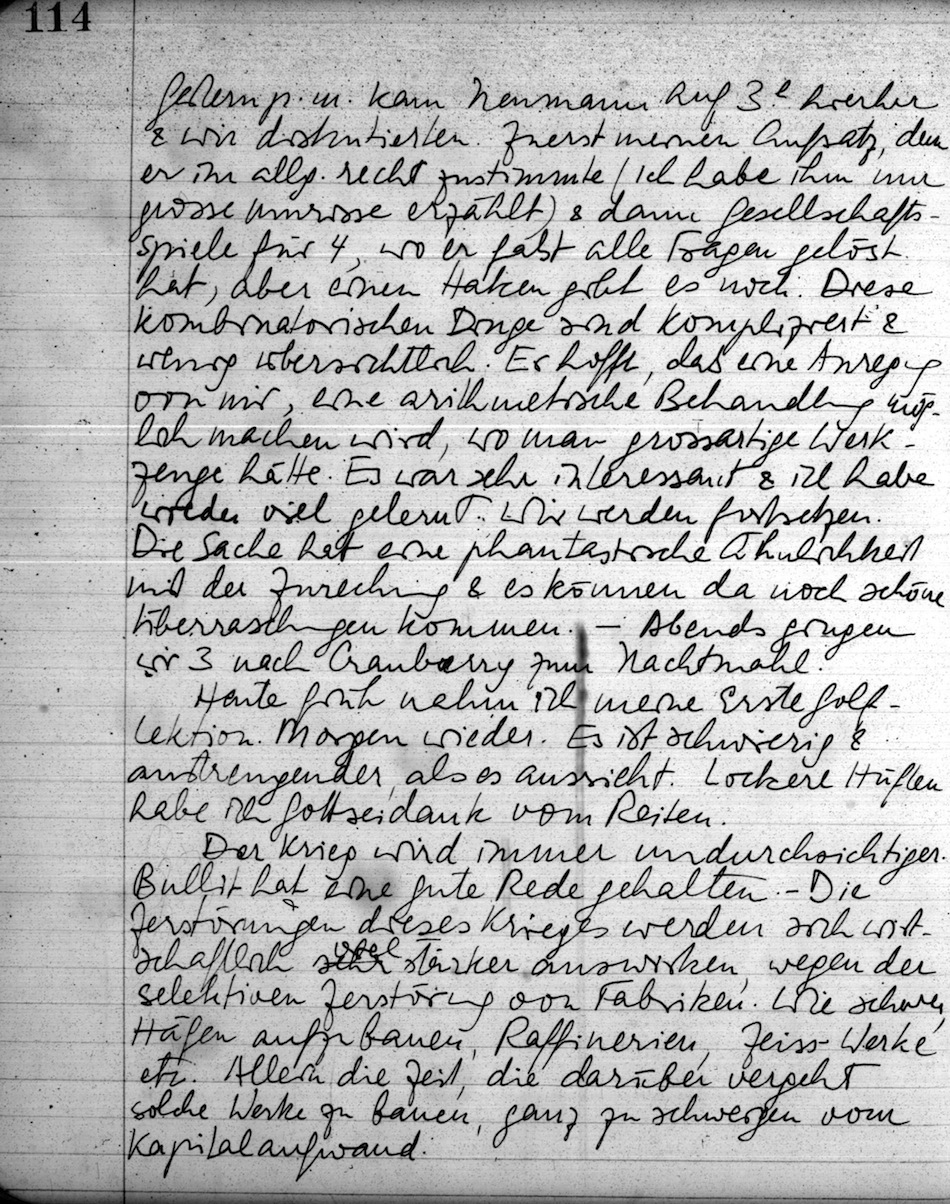 114
Gestern p. m. kam Neumann auf 3h hierher
& wir diskutierten. Zuerst meinen Aufsatz, dem
er im allg. recht zustimmte (ich habe ihm nur
grosse Umrisse erzählt) & dann Gesellschafts-
spiele für 4, wo er fast alle Fragen gelöst
hat, aber einen Haken gibt es noch. Diese
kombinatorischen Dinge sind kompliziert &
wenig übersichtlich. Er hofft, das eine Anregung
von mir, eine arithmetische Behandlung mög-
lich machen wird, wo man grossartige Werk-
zeuge hätte. Es war sehr interessant & ich habe
wieder viel gelernt. Wir werden fortsetzen.
Die Sache hat eine phantastische Ähnlichkeit
mit der Zurechnung & es können da noch schöne
Überraschungen kommen. – Abends gingen
wir 3 nach Cranberry zum Nachtmahl.
Heute früh nahm ich meine erste Golf-
lektion. Morgen wieder. Es ist schwierig &
anstrengender, als es aussieht. Lockere Hüften
habe ich Gottseidank vom Reiten.
Der Krieg wird immer undurchsichtiger.
Bullit hat eine gute Rede gehalten. – Die
Zerstörungen dieses Krieges werden sich wirt-
schaftlich viel stärker auswirken, wegen der
selektiven Zerstörung von Fabriken. Wie schwer,
Häfen aufzubauen, Raffinerien, Zeiss-Werke
etc. Allein die Zeit, die darüber vergeht
solche Werke zu bauen, ganz zu schweigen vom
Kapitalaufwand.